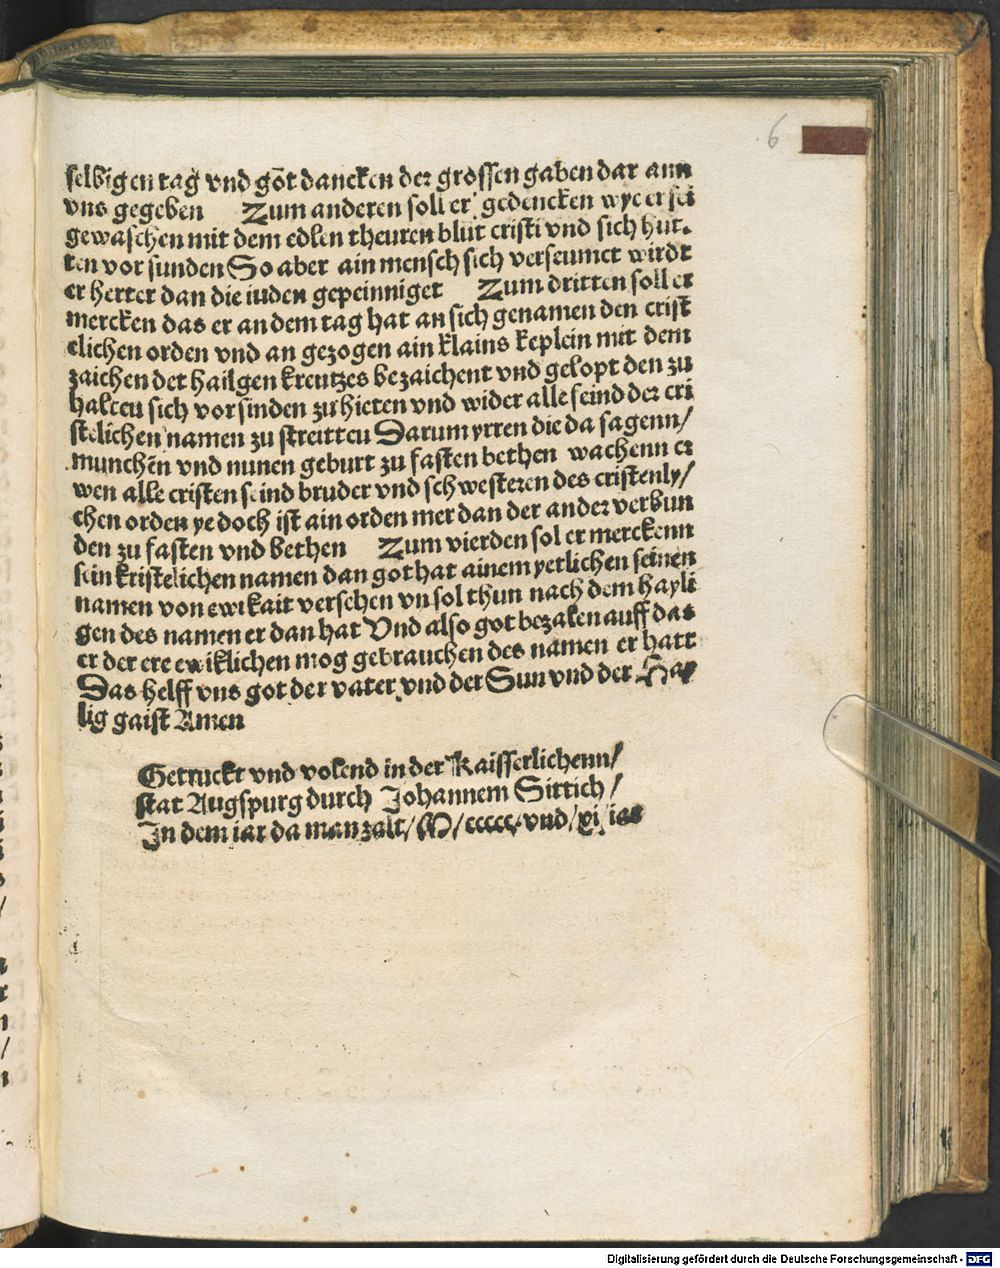 6
selbigen tag vnd got dancken der grossen gaben dar ann
vns gegeben Zum anderen soll er gedencken wye er sei
gewaschen mit dem edlen theuren blut cristi vnd sich hut-
ten vor sunden So aber ain mensch sich verseumet wirdt
er herter dan die iuden gepeinniget Zum dritten soll er
mercken das er an dem tag hat an sich genamen den crist
elichen orden vnd an gezogen ain klains keplein mit dem
zaichen det hailgen kreutzes bezaichent vnd gelopt den zu
halten sich vor sinden zu hieten vnd wider alle feind der cri
stelichen namen zu streitten Darum yrren die da sagenn/
munchen̄ vnd nunen geburt zu fasten bethen wachenn er
wen alle cristen seind bruder vnd schwesteren des cristenly/
chen orden ye doch ist ain orden mer dan der ander verbun
den zu fasten vnd bethen Zum vierden sol er merckenn
sein kristelichen namen dan got hat ainem yetlichen seinen
namen von ewikait versehen vn sol thun nach dem hayli
gen des namen er dan hat Vnd also got bezalen auff das
er der ere ewiklichen mog gebrauchen des namen er hatt
Das helff vns got der vater vnd der Sun vnd der Hay
lig gaist Amen
Getruckt vnd volend in der Kaisserlichenn/
stat Augspurg durch Johannem Sittich/
In dem iar da man zalt/M/ccccc/vnd/xi/iar
Digitalisierung gefördert durch die Deutsche Forschungsgemeinschaft - DFG